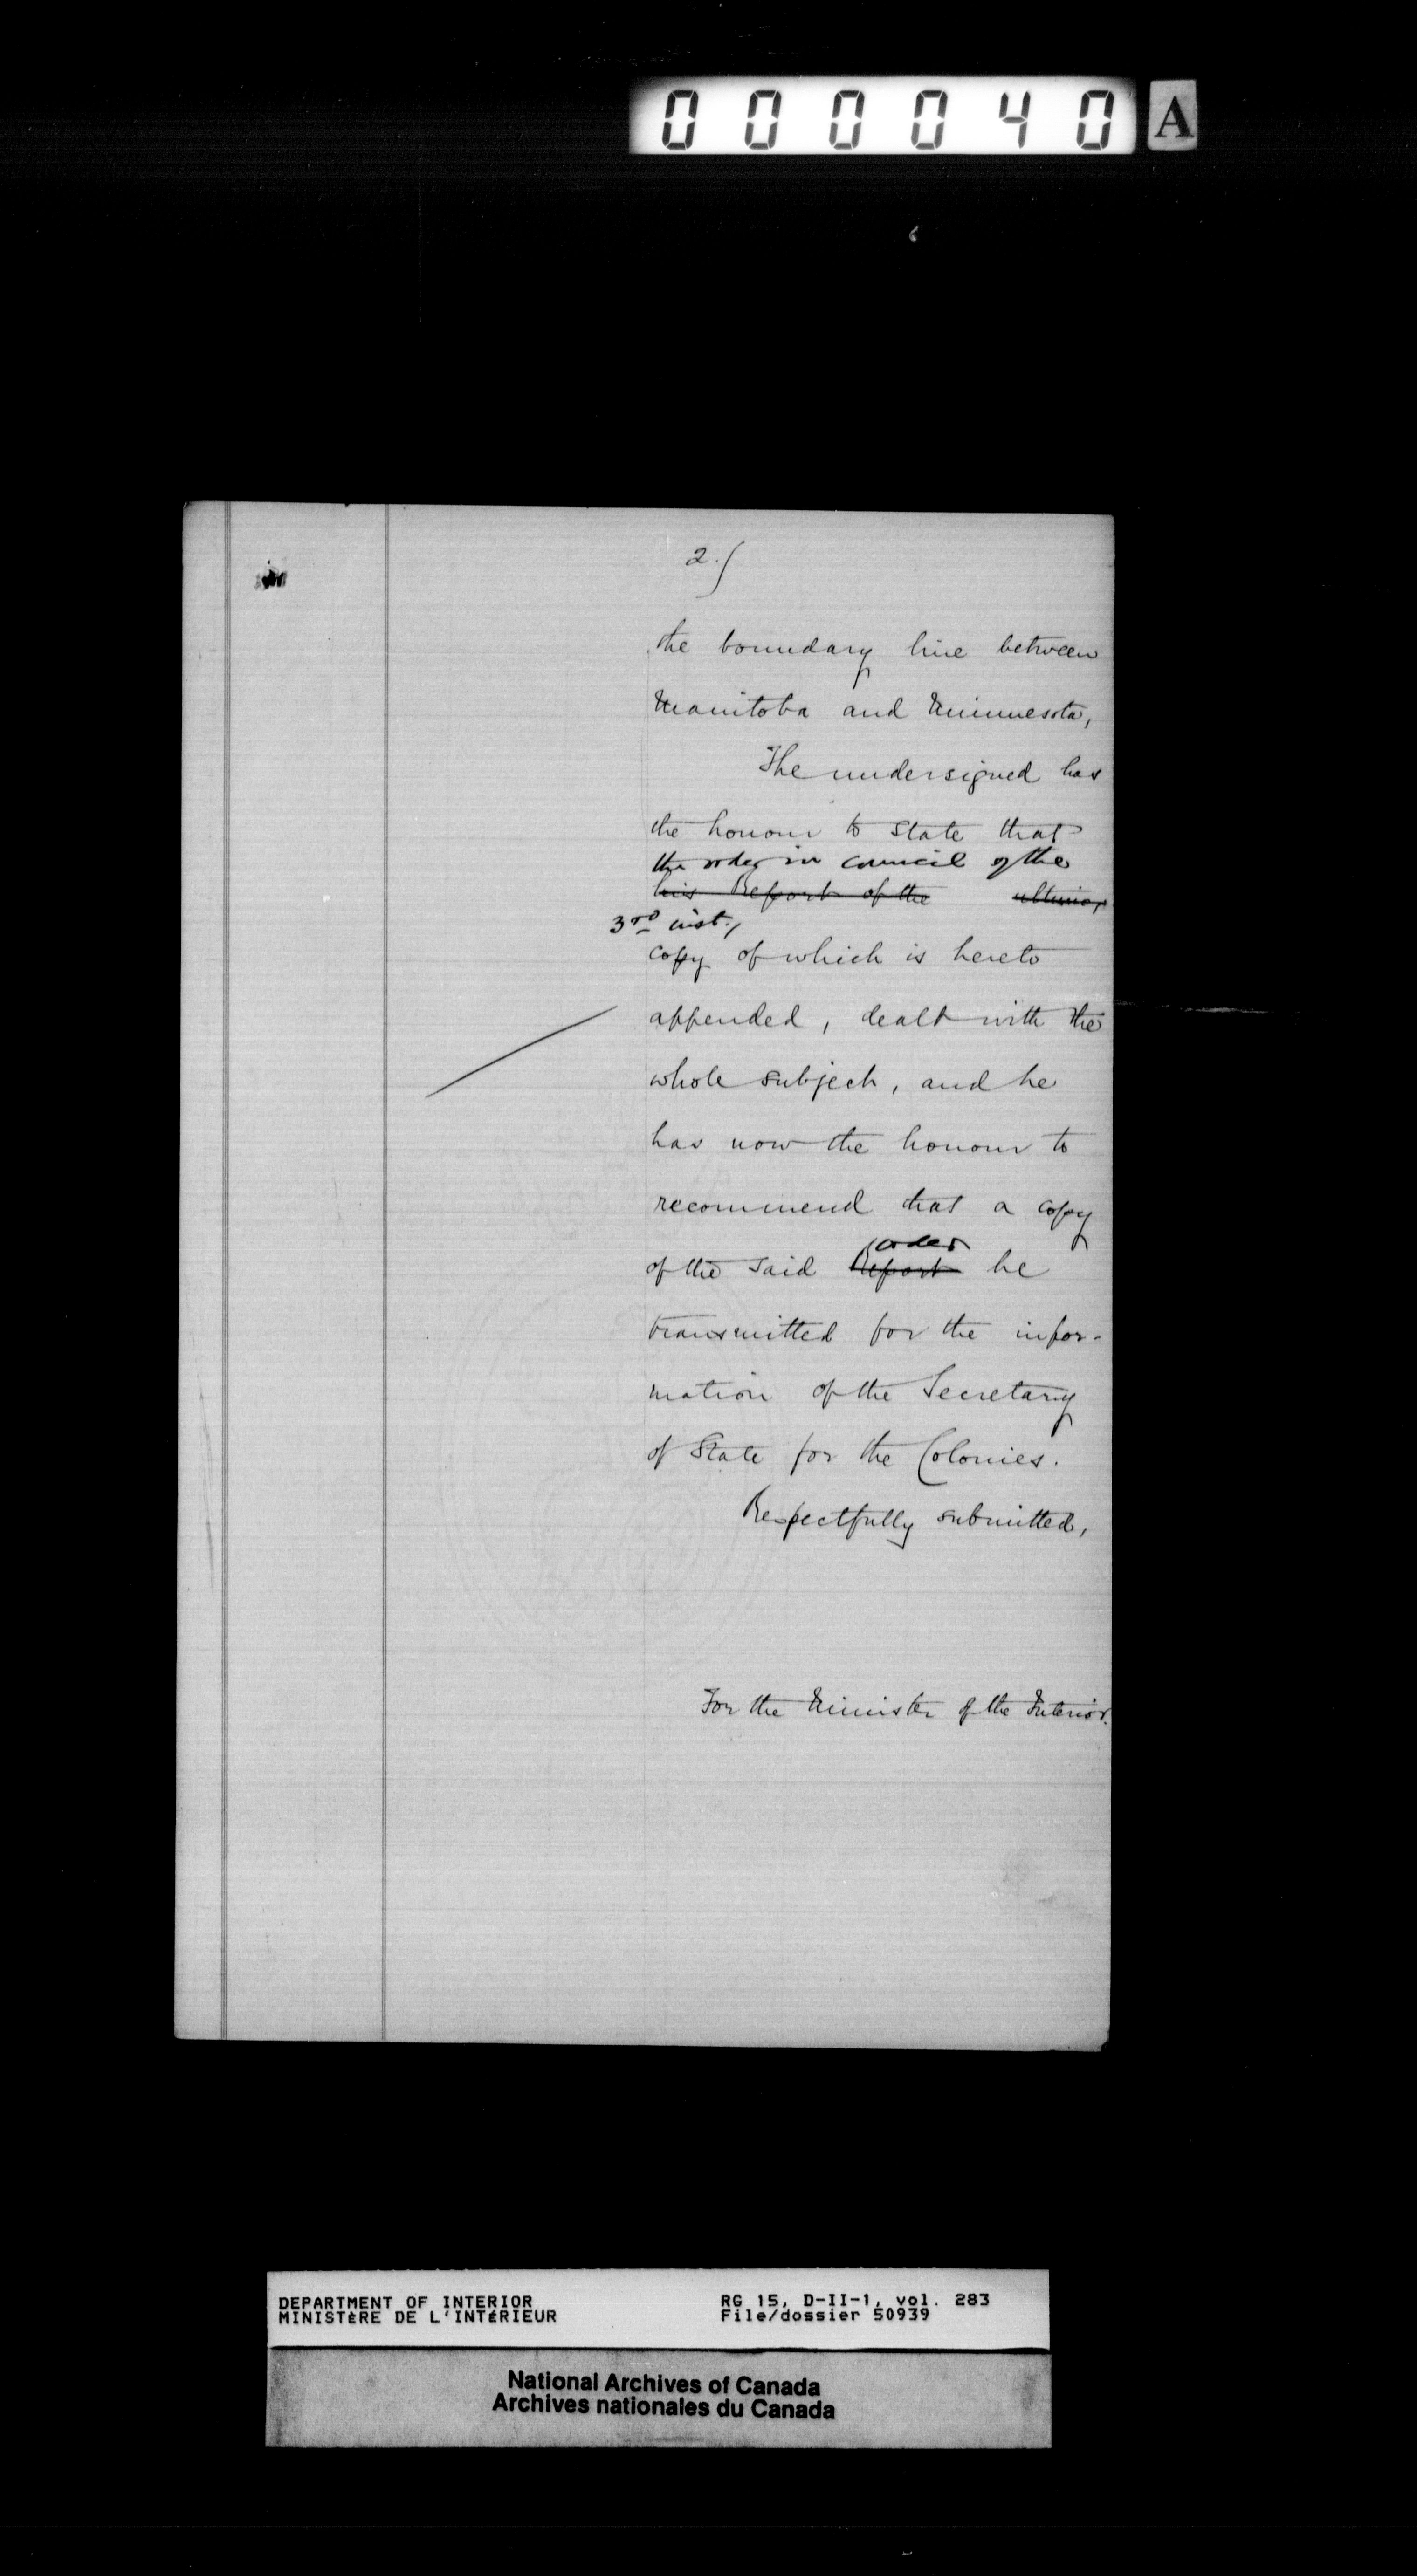 000040 A
2.)
the boundary line between
Manitoba and Minnesota,
The undersigned has
the honour to state that
the order in council of the
his Report of the ultimo,
3rd inst.,
copy of which is hereto
appended, dealt with the
whole subject, and he
has now the honour to
recommend that a copy
order
of the said Report be
transmitted for the infor-
mation of the Secretary
of State for the Colonies.
Respectfully submitted,
For the Minister of the Interior.
DEPARTMENT OF INTERIOR RG 15, D-II-1, vol. 283
MINISTÈRE DE L'INTÉRIEUR File/dossier 50939
National Archives of Canada
Archives nationales du Canada